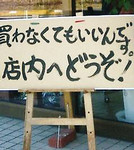 買わなくてもいいんです。
店内へどうぞ！